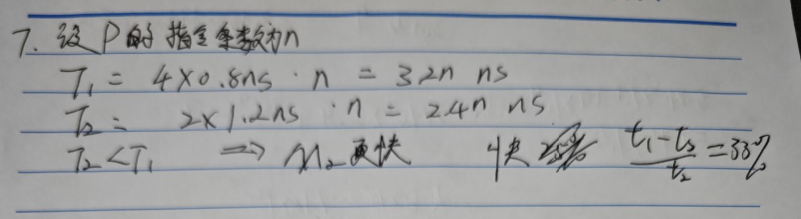 7. 设 P的指令条数为n
T₁ = 4×0.8ns · n = 3.2n ns
T₂ = 2×1.2ns · n = 2.4n ns
T₂<T₁ ⇒ M₂更快 快 (t₁-t₂)/t₂ =33%